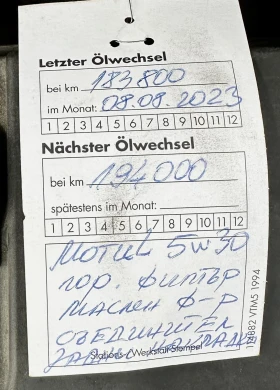 Letzter Ölwechsel
bei km 183 800
im Monat: 08.08.2023
1 2 3 4 5 6 7 8 9 10 11 12
Nächster Ölwechsel
bei km 194000
spätestens im Monat:
1 2 3 4 5 6 7 8 9 10 11 12
МОТUL 5w30
гор. филтър
маслен ф-р
Stations-/Werkstatt-Stempel
VTM5 1994